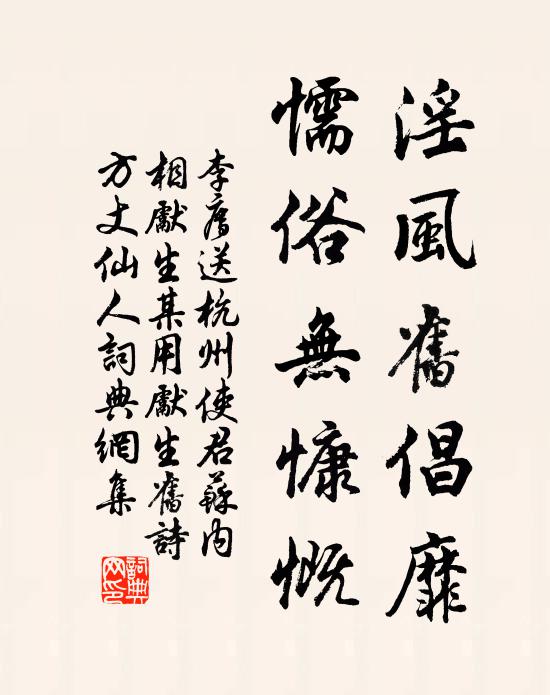 淫風舊倡靡
懦俗無慷慨
李廌送杭州使君蘇內
相獻生某用獻生舊詩
方丈仙人詞典網集
詞典网印